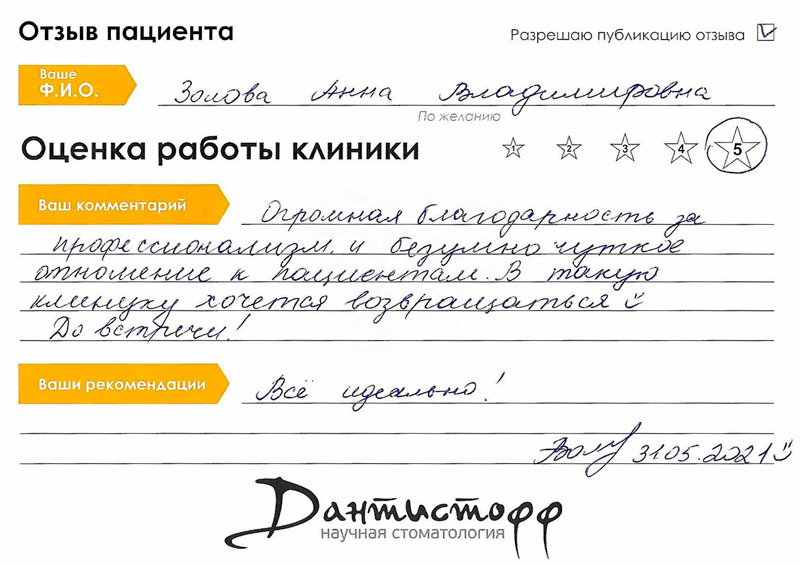 Отзыв пациента
Разрешаю публикацию отзыва
Ваше Ф.И.О.
Золова Анна Владимировна
По желанию
Оценка работы клиники
1 2 3 4 5
Ваш комментарий
Огромная благодарность за
профессионализм, и безумно чуткое
отношение к пациентам. В такую
клинику хочется возвращаться
До встречи!
Ваши рекомендации
Всё идеально!
31.05.2021
Дантистофф
научная стоматология